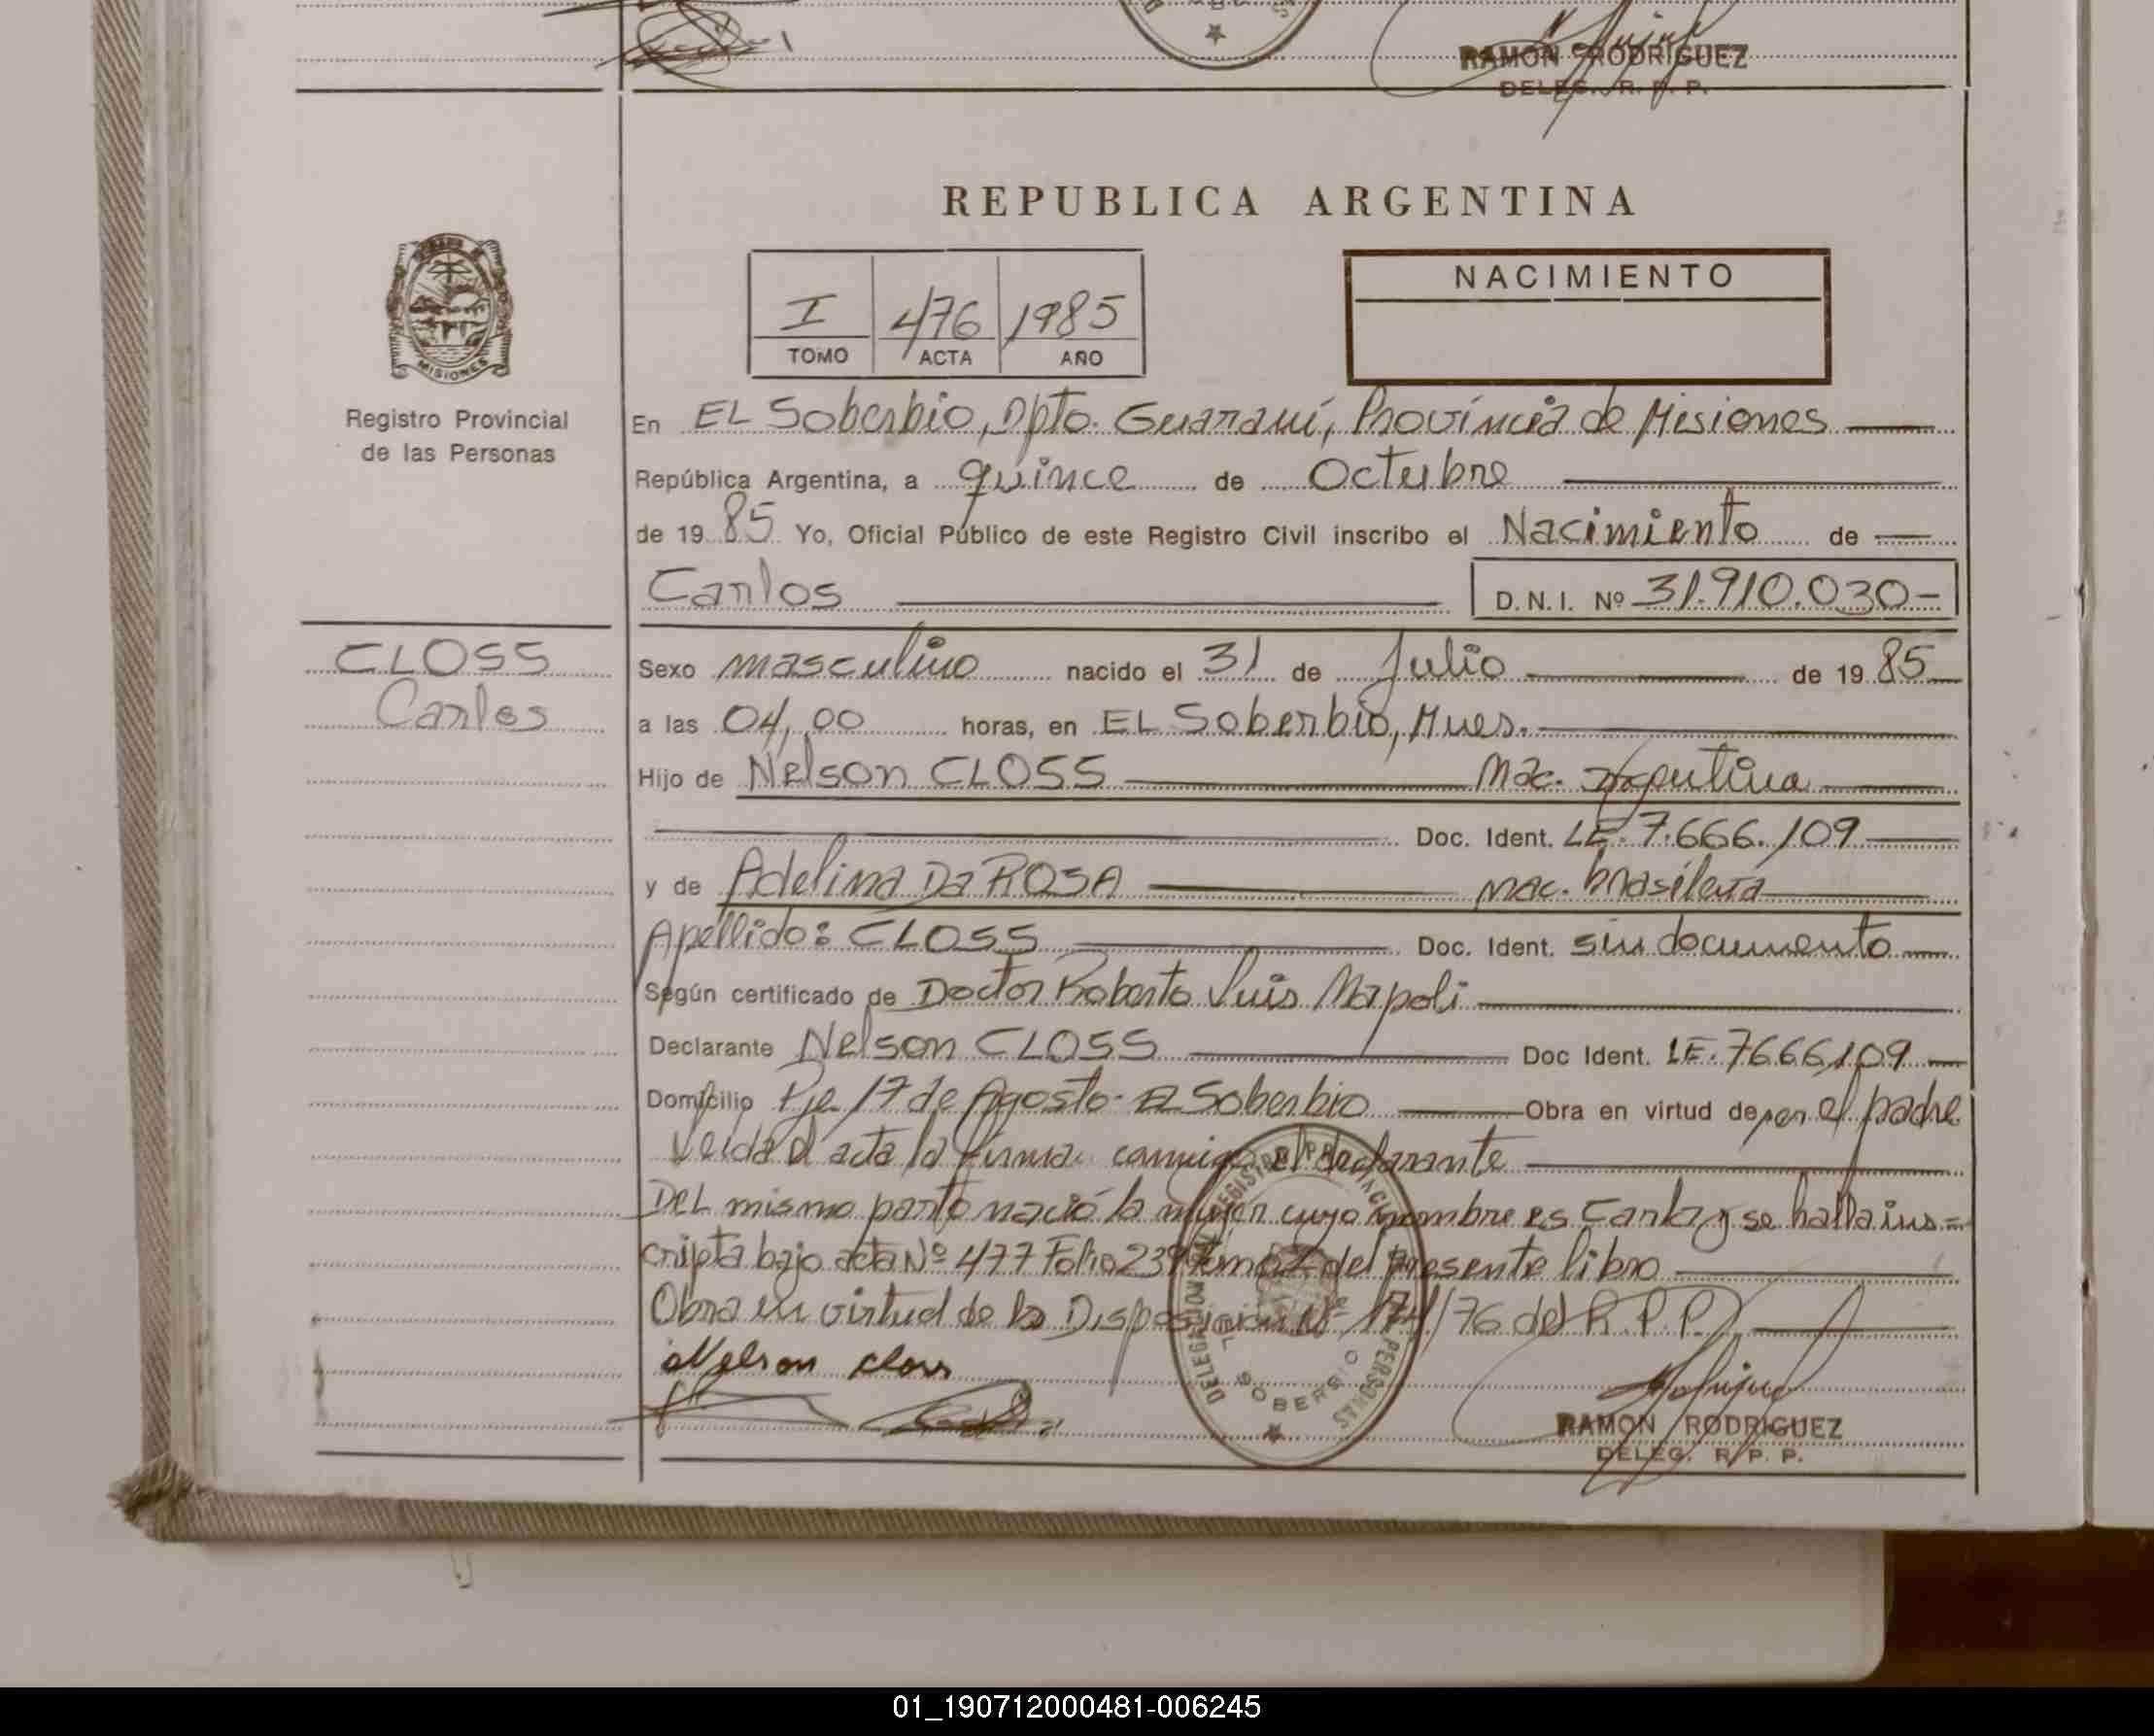 RAMON RODRIGUEZ
DELEG. R. P. P.
REPUBLICA ARGENTINA
I 476 1985
TOMO ACTA AÑO
NACIMIENTO
MISIONES
Registro Provincial
de las Personas
En EL Soberbio, Dpto. Guaraní, Província de Misiones
República Argentina, a quince de Octubre
de 19 85 Yo, Oficial Público de este Registro Civil inscribo el Nacimiento de
Carlos D.N.I. Nº 31.910.030-
CLOSS
Carlos
Sexo masculino nacido el 31 de Julio de 19 85
a las 04,00 horas, en EL Soberbio, Mnes.
Hijo de Nelson CLOSS nac. argentina
Doc. Ident. LE. 7.666.109
y de Adelina Da ROSA nac. brasilera
Apellido: CLOSS Doc. Ident. sin documento
Según certificado de Doctor Roberto Luis Napoli
Declarante Nelson CLOSS Doc Ident. LE. 7666109
Domicilio Pje 17 de Agosto - El Soberbio Obra en virtud de ser el padre
Leida el acta la firma conmigo el declarante
Del mismo parto nació la mujer cuyo nombre es Carla y se halla ins=
cripta bajo acta Nº 477 Folio 239 Tomo I del presente libro
Obra en virtud de la Disposición Nº 174/76 del R.P.P.
Nelson Closs
DELEGACION REGISTRO PROVINCIAL PERSONAS
EL SOBERBIO
RAMON RODRIGUEZ
DELEG. R. P. P.
01_190712000481-006245